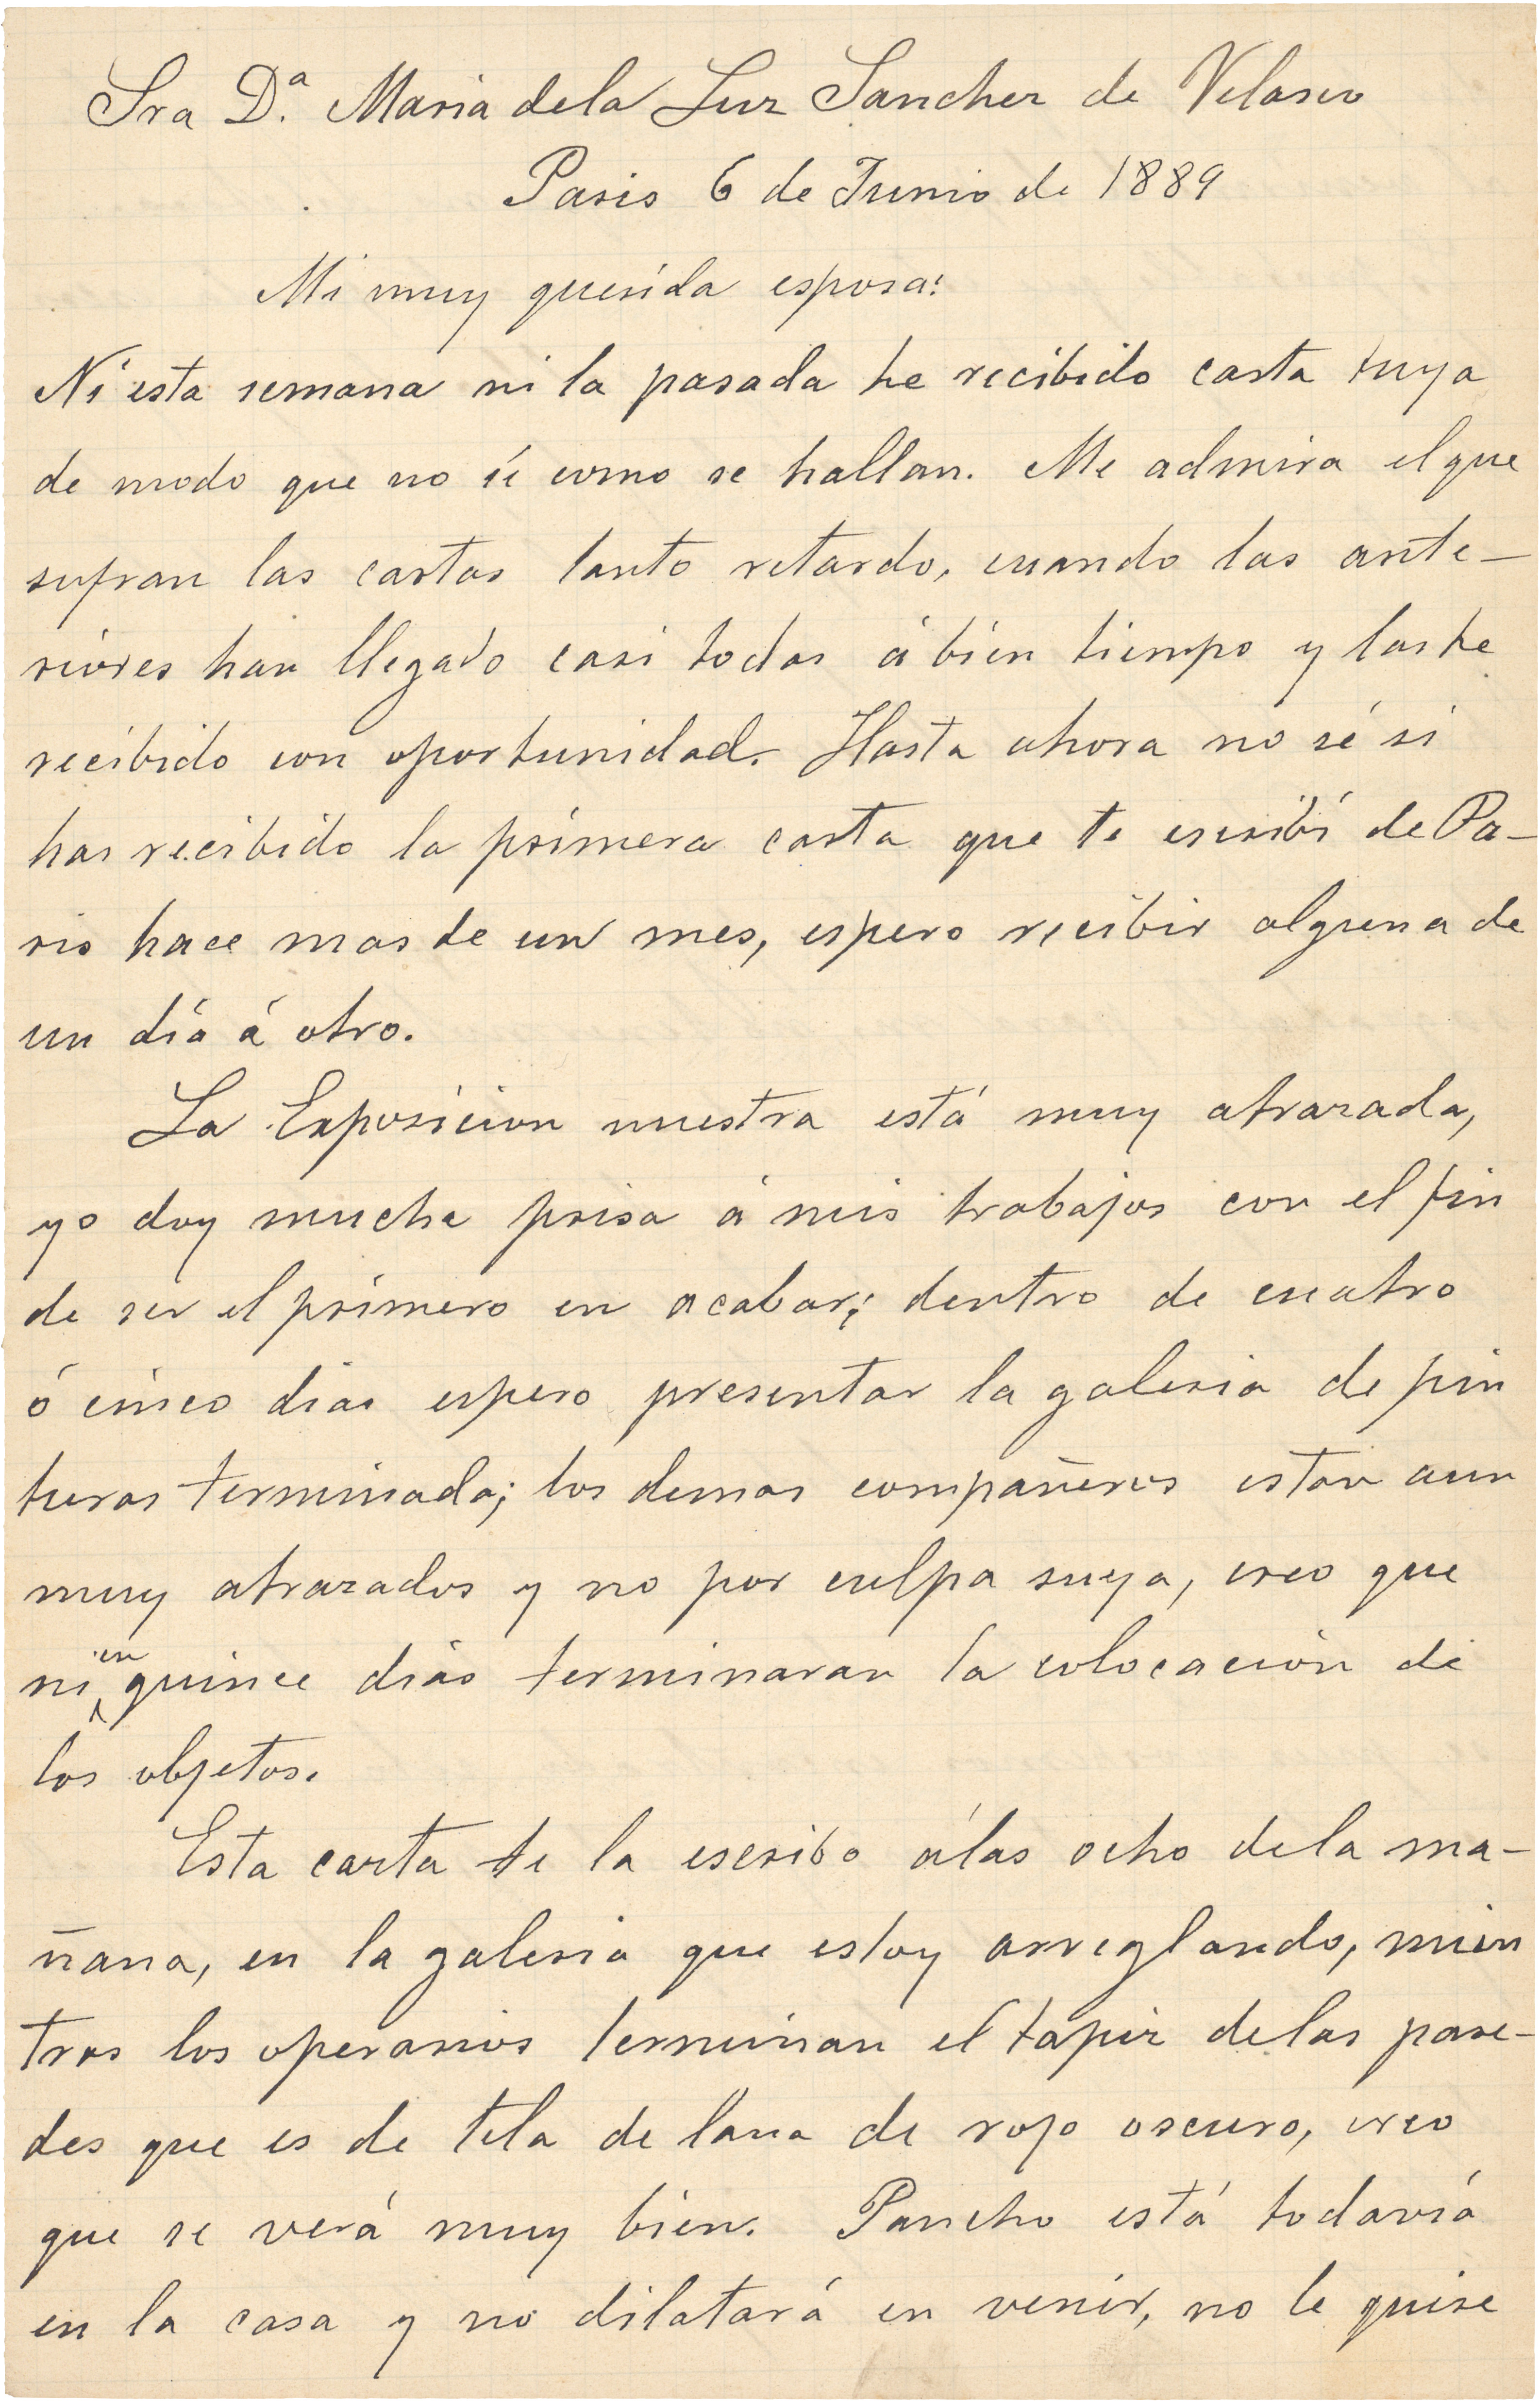 Sra D.ª Maria dela Luz Sanchez de Velasco
Paris 6 de Junio de 1889
Mi muy querida esposa:
Ni esta semana ni la pasada he recibido carta tuya
de modo que no sé como se hallan. Me admira el que
sufran las cartas tanto retardo, cuando las ante-
riores han llegado casi todas á bien tiempo y las he
recibido con oportunidad. Hasta ahora no sé si
has recibido la primera carta que te escribí de Pa-
ris hace mas de un mes, espero recibir alguna de
un día á otro.
La Exposicion nuestra está muy atrazada,
yo doy mucha prisa á mis trabajos con el fin
de ser el primero en acabar; dentro de cuatro
ó cinco dias espero presentar la galeria de pin
turas terminada; los demas compañeros estan aun
muy atrazados y no por culpa suya, creo que
ni en quince dias terminaran la colocación de
los objetos.
Esta carta te la escribo álas ocho dela ma-
ñana, en la galeria que estoy arreglando, mien
tras los operarios terminan el tapiz delas pare-
des que es de tela de lana de rojo oscuro, creo
que se verá muy bien. Pancho está todavía
en la casa y no dilatará en venir, no le quise